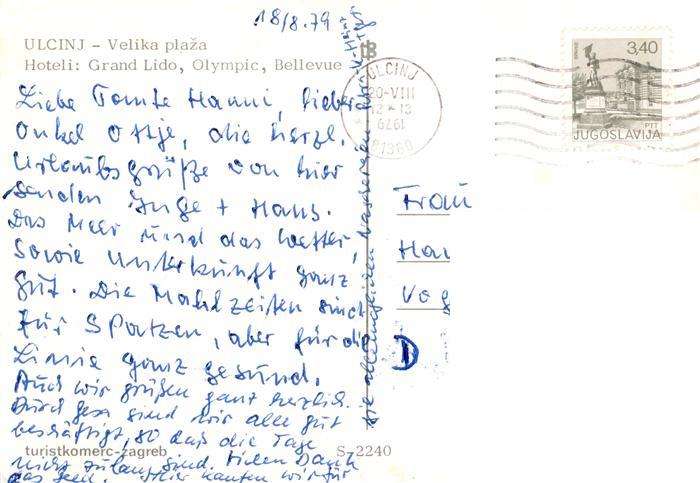 18/8.79
ULCINJ – Velika plaža
Hoteli: Grand Lido, Olympic, Bellevue
Liebe Tante Hanni, lieber
Onkel Ottje, die herzl.
Urlaubsgrüße von hier
senden Inge + Hans.
Das Meer und das Wetter,
sowie Unterkunft ganz
gut. Die Mahlzeiten sind
für Spatzen, aber für die
Linie ganz gesund.
Auch wir grüßen ganz herzlich.
sind wir alle gut
beschäftigt, so daß die Tage
nicht zu lang sind. Vielen Dank
wir für
turistkomerc-zagreb
S-2240
die
ULCINJ
20-VIII
12 13
1979
81360
3,40
PTT
JUGOSLAVIJA
Frau
Han
Vog
D